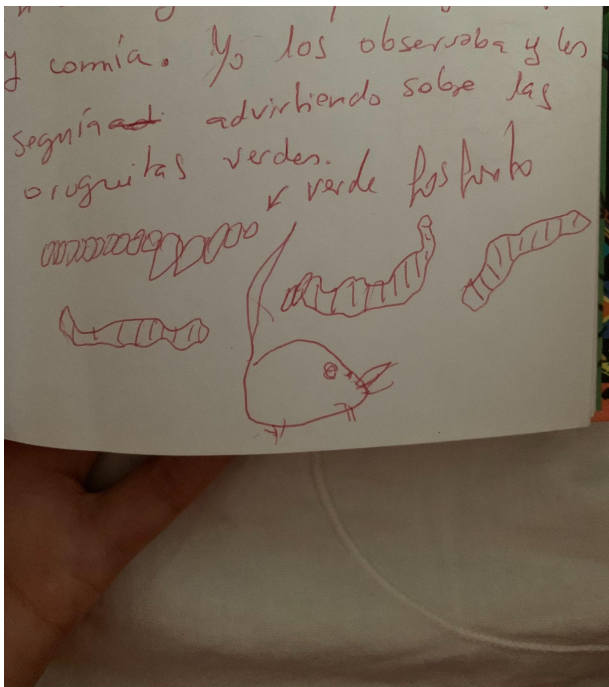 y comía. Yo los observaba y les
seguía advirtiendo sobre las
oruguitas verdes.
verde fosforito